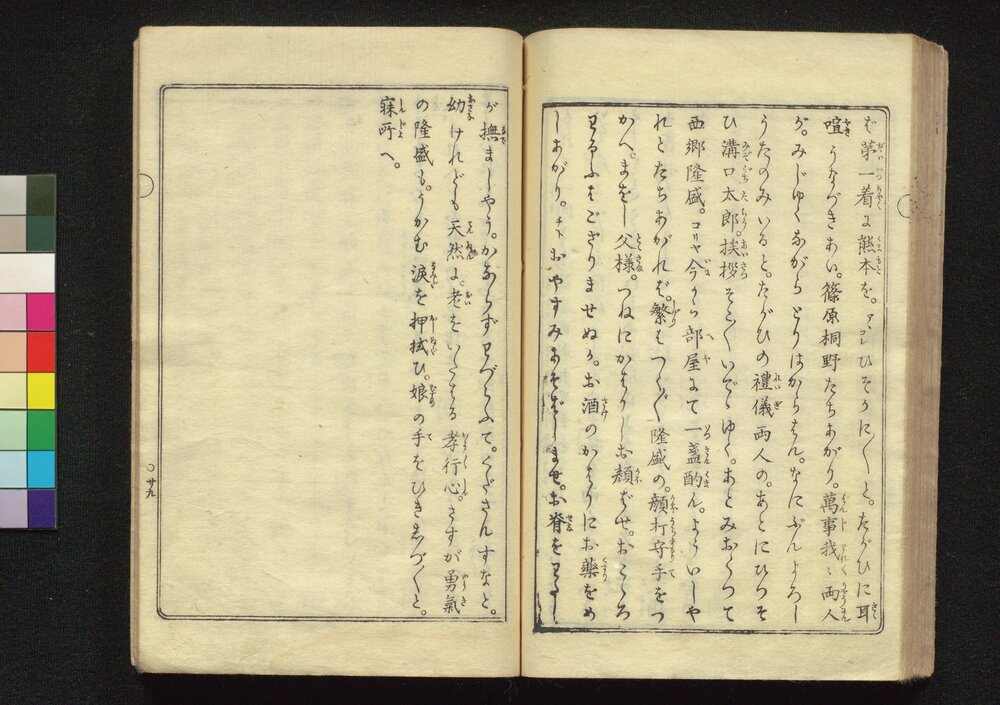 ば第一着に熊本を。アヽコレひそかに〳〵と。たがひに耳
喧うなづきあい。篠原桐野たちあがり。萬事我々両人
が。みじゆくながらとりはからはん。なにぶんよろし
うたのみいると。たがひの禮儀両人の。あとにひつそ
ひ溝口太郎。挨拶そこ〳〵いでゝゆく。あとみおくつて
西郷隆盛。コリヤ今から部屋にて一盞酌ん。よういしや
れとたちあがれば。繁はつく〴〵隆盛の。顔打守手をつ
かへ。まをし父様。つねにかはりしお顔ばせ。おこゝろ
わるふはござりませぬか。お酒のかはりにお薬をめ
しあがり。チトおやすみあそばしませ。お脊をわたし
が撫ましやう。かならずわづらふて。くださんすなと。
幼けれども天然に。老をいたはる孝行心。さすが勇氣
の隆盛も。うかむ涙を押拭ひ。娘の手をひきしづ〳〵と。
寐所へ。
〇廿九